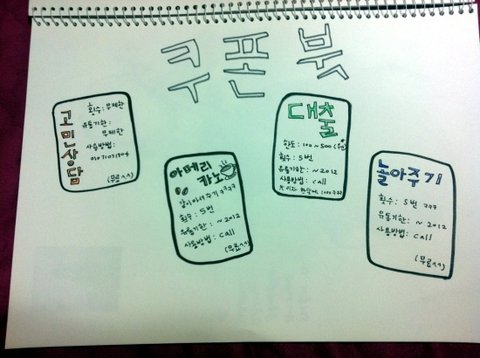 쿠폰북
고민상담
횟수 : 무제한
유통기한 :
무제한
사용방법 :
(무료^^)
아메리
카노
횟수 : 5번
유통기한 : ~ 2012
사용방법 : call
(무료^^)
대출
한도 : 100 ~ 500 (원)
횟수 : 5번
유통기한 : ~ 2012
사용방법 : call
놀아주기
횟수 : 5번 ㅋㅋㅋ
유통기한 : ~ 2012
사용방법 : call
(무료^^)